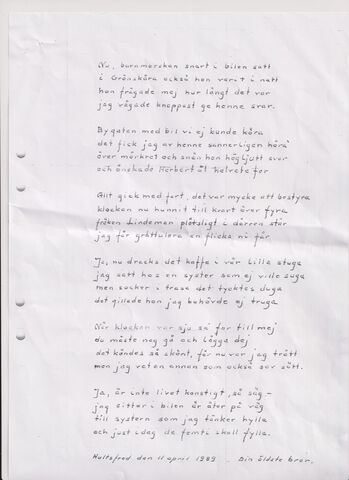 Nu, barnmorskan snart i bilen satt
i Grönskåra också hon varit i natt
hon frågade mej hur långt det var
jag vågade knappast ge henne svar.
Bygatan med bil vi ej kunde köra
det fick jag av henne sannerligen höra
över mörkret och snön hon högljutt svor
och önskade Herbert åt helvete for
Allt gick med fart, det var mycke att bestyra
klockan nu hunnit till kvart över fyra
fröken Lindeman plötsligt i dörren står
jag får gratulera en flicka ni får
Ja, nu dracks det kaffe i vår lilla stuga
jag satt hos en syster som ej ville suga
men socker i trasa det tycktes duga
det gillade hon jag behövde ej truga
När klockan var sju sa far till mej
du måste nog gå och lägga dej
det kändes så skönt, för nu var jag trött
men jag vetan annan som också sov sött.
Ja, är inte livet konstigt, så säg-
jag sitter i bilen är åter på väg
till systern som jag tänker hylla
och just idag de femti skall fylla.
Hultsfred den 11 april 1989 - Din äldste bror.